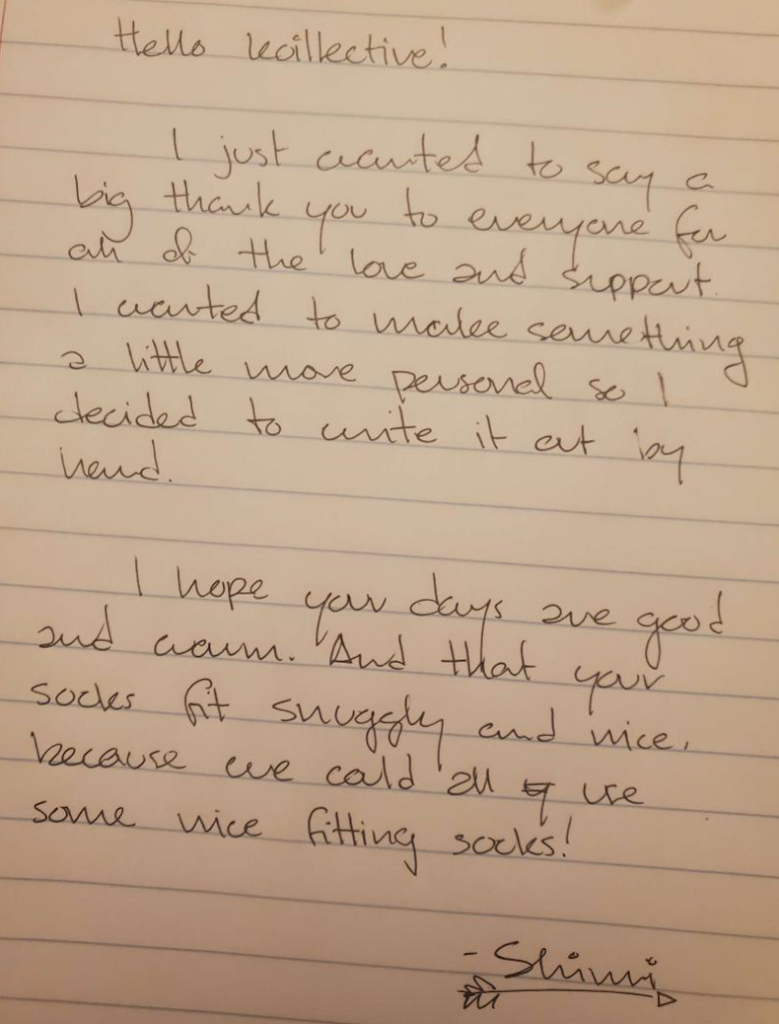 Hello kollective!
I just wanted to say a
big thank you to everyone for
all of the love and support.
I wanted to make something
a little more personal so I
decided to write it out by
hand.
I hope your days are good
and warm. And that your
socks fit snuggly and nice,
because we could all use
some nice fitting socks!
- Shimi